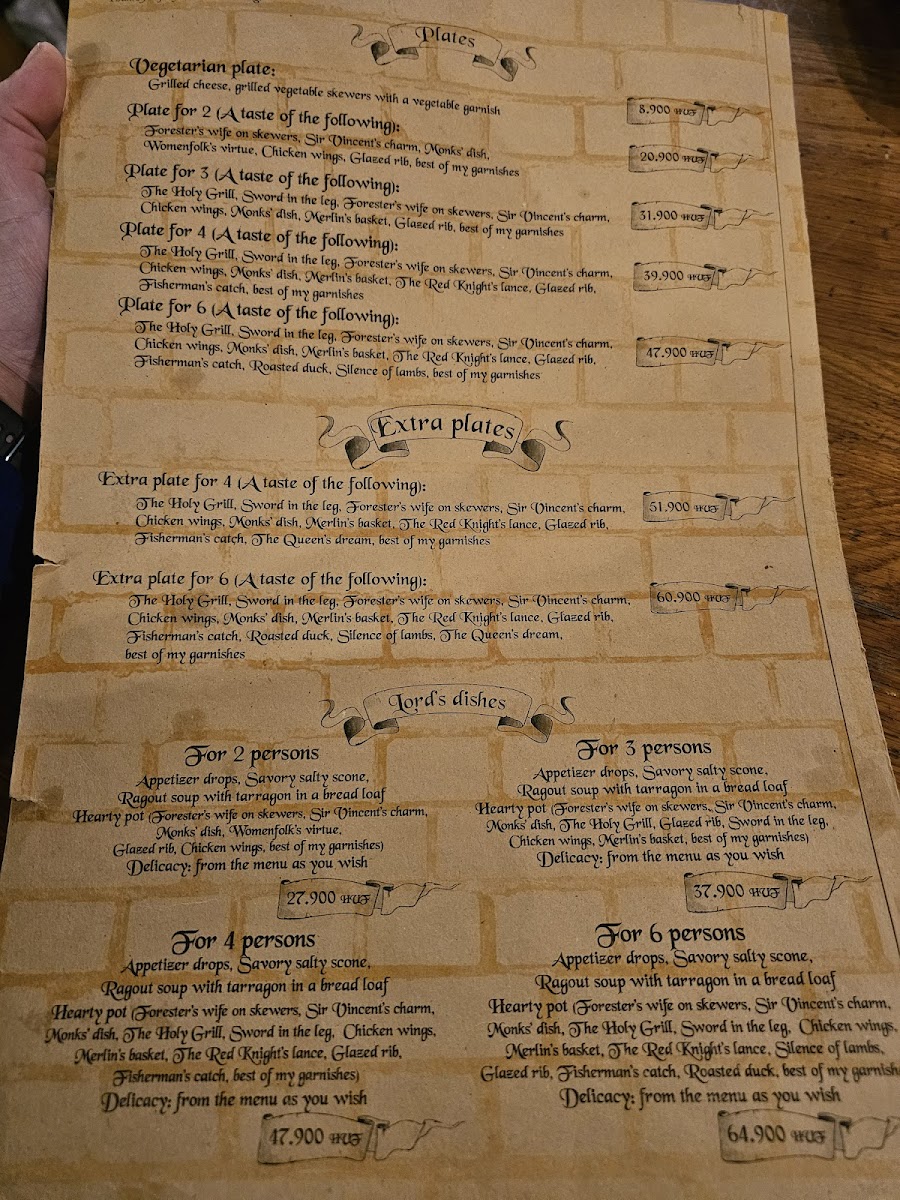 Plates
Vegetarian plate:
Grilled cheese, grilled vegetable skewers with a vegetable garnish
8.900 HUF
Plate for 2 (A taste of the following):
Forester's wife on skewers, Sir Vincent's charm, Monks' dish,
Womenfolk's virtue, Chicken wings, Glazed rib, best of my garnishes
20.900 HUF
Plate for 3 (A taste of the following):
The Holy Grill, Sword in the leg, Forester's wife on skewers, Sir Vincent's charm,
Chicken wings, Monks' dish, Merlin's basket, Glazed rib, best of my garnishes
31.900 HUF
Plate for 4 (A taste of the following):
The Holy Grill, Sword in the leg, Forester's wife on skewers, Sir Vincent's charm,
Chicken wings, Monks' dish, Merlin's basket, The Red Knight's lance, Glazed rib,
Fisherman's catch, best of my garnishes
39.900 HUF
Plate for 6 (A taste of the following):
The Holy Grill, Sword in the leg, Forester's wife on skewers, Sir Vincent's charm,
Chicken wings, Monks' dish, Merlin's basket, The Red Knight's lance, Glazed rib,
Fisherman's catch, Roasted duck, Silence of lambs, best of my garnishes
47.900 HUF
Extra plates
Extra plate for 4 (A taste of the following):
The Holy Grill, Sword in the leg, Forester's wife on skewers, Sir Vincent's charm,
Chicken wings, Monks' dish, Merlin's basket, The Red Knight's lance, Glazed rib,
Fisherman's catch, The Queen's dream, best of my garnishes
51.900 HUF
Extra plate for 6 (A taste of the following):
The Holy Grill, Sword in the leg, Forester's wife on skewers, Sir Vincent's charm,
Chicken wings, Monks' dish, Merlin's basket, The Red Knight's lance, Glazed rib,
Fisherman's catch, Roasted duck, Silence of lambs, The Queen's dream,
best of my garnishes
60.900 HUF
Lord's dishes
For 2 persons
Appetizer drops, Savory salty scone,
Ragout soup with tarragon in a bread loaf
Hearty pot (Forester's wife on skewers, Sir Vincent's charm,
Monks' dish, Womenfolk's virtue,
Glazed rib, Chicken wings, best of my garnishes)
Delicacy: from the menu as you wish
27.900 HUF
For 3 persons
Appetizer drops, Savory salty scone,
Ragout soup with tarragon in a bread loaf
Hearty pot (Forester's wife on skewers, Sir Vincent's charm,
Monks' dish, The Holy Grill, Glazed rib, Sword in the leg,
Chicken wings, Merlin's basket, best of my garnishes)
Delicacy: from the menu as you wish
37.900 HUF
For 4 persons
Appetizer drops, Savory salty scone,
Ragout soup with tarragon in a bread loaf
Hearty pot (Forester's wife on skewers, Sir Vincent's charm,
Monks' dish, The Holy Grill, Sword in the leg, Chicken wings,
Merlin's basket, The Red Knight's lance, Glazed rib,
Fisherman's catch, best of my garnishes)
Delicacy: from the menu as you wish
47.900 HUF
For 6 persons
Appetizer drops, Savory salty scone,
Ragout soup with tarragon in a bread loaf
Hearty pot (Forester's wife on skewers, Sir Vincent's charm,
Monks' dish, The Holy Grill, Sword in the leg, Chicken wings,
Merlin's basket, The Red Knight's lance, Silence of lambs,
Glazed rib, Fisherman's catch, Roasted duck, best of my garnish
Delicacy: from the menu as you wish
64.900 HUF